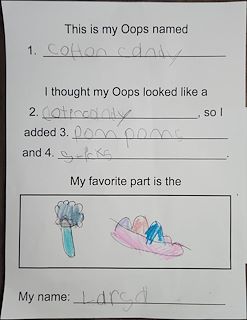 This is my Oops named
1. cotton candy
I thought my Oops looked like a
2. , so I
added 3. Pom poms
and 4.
My favorite part is the
My name: